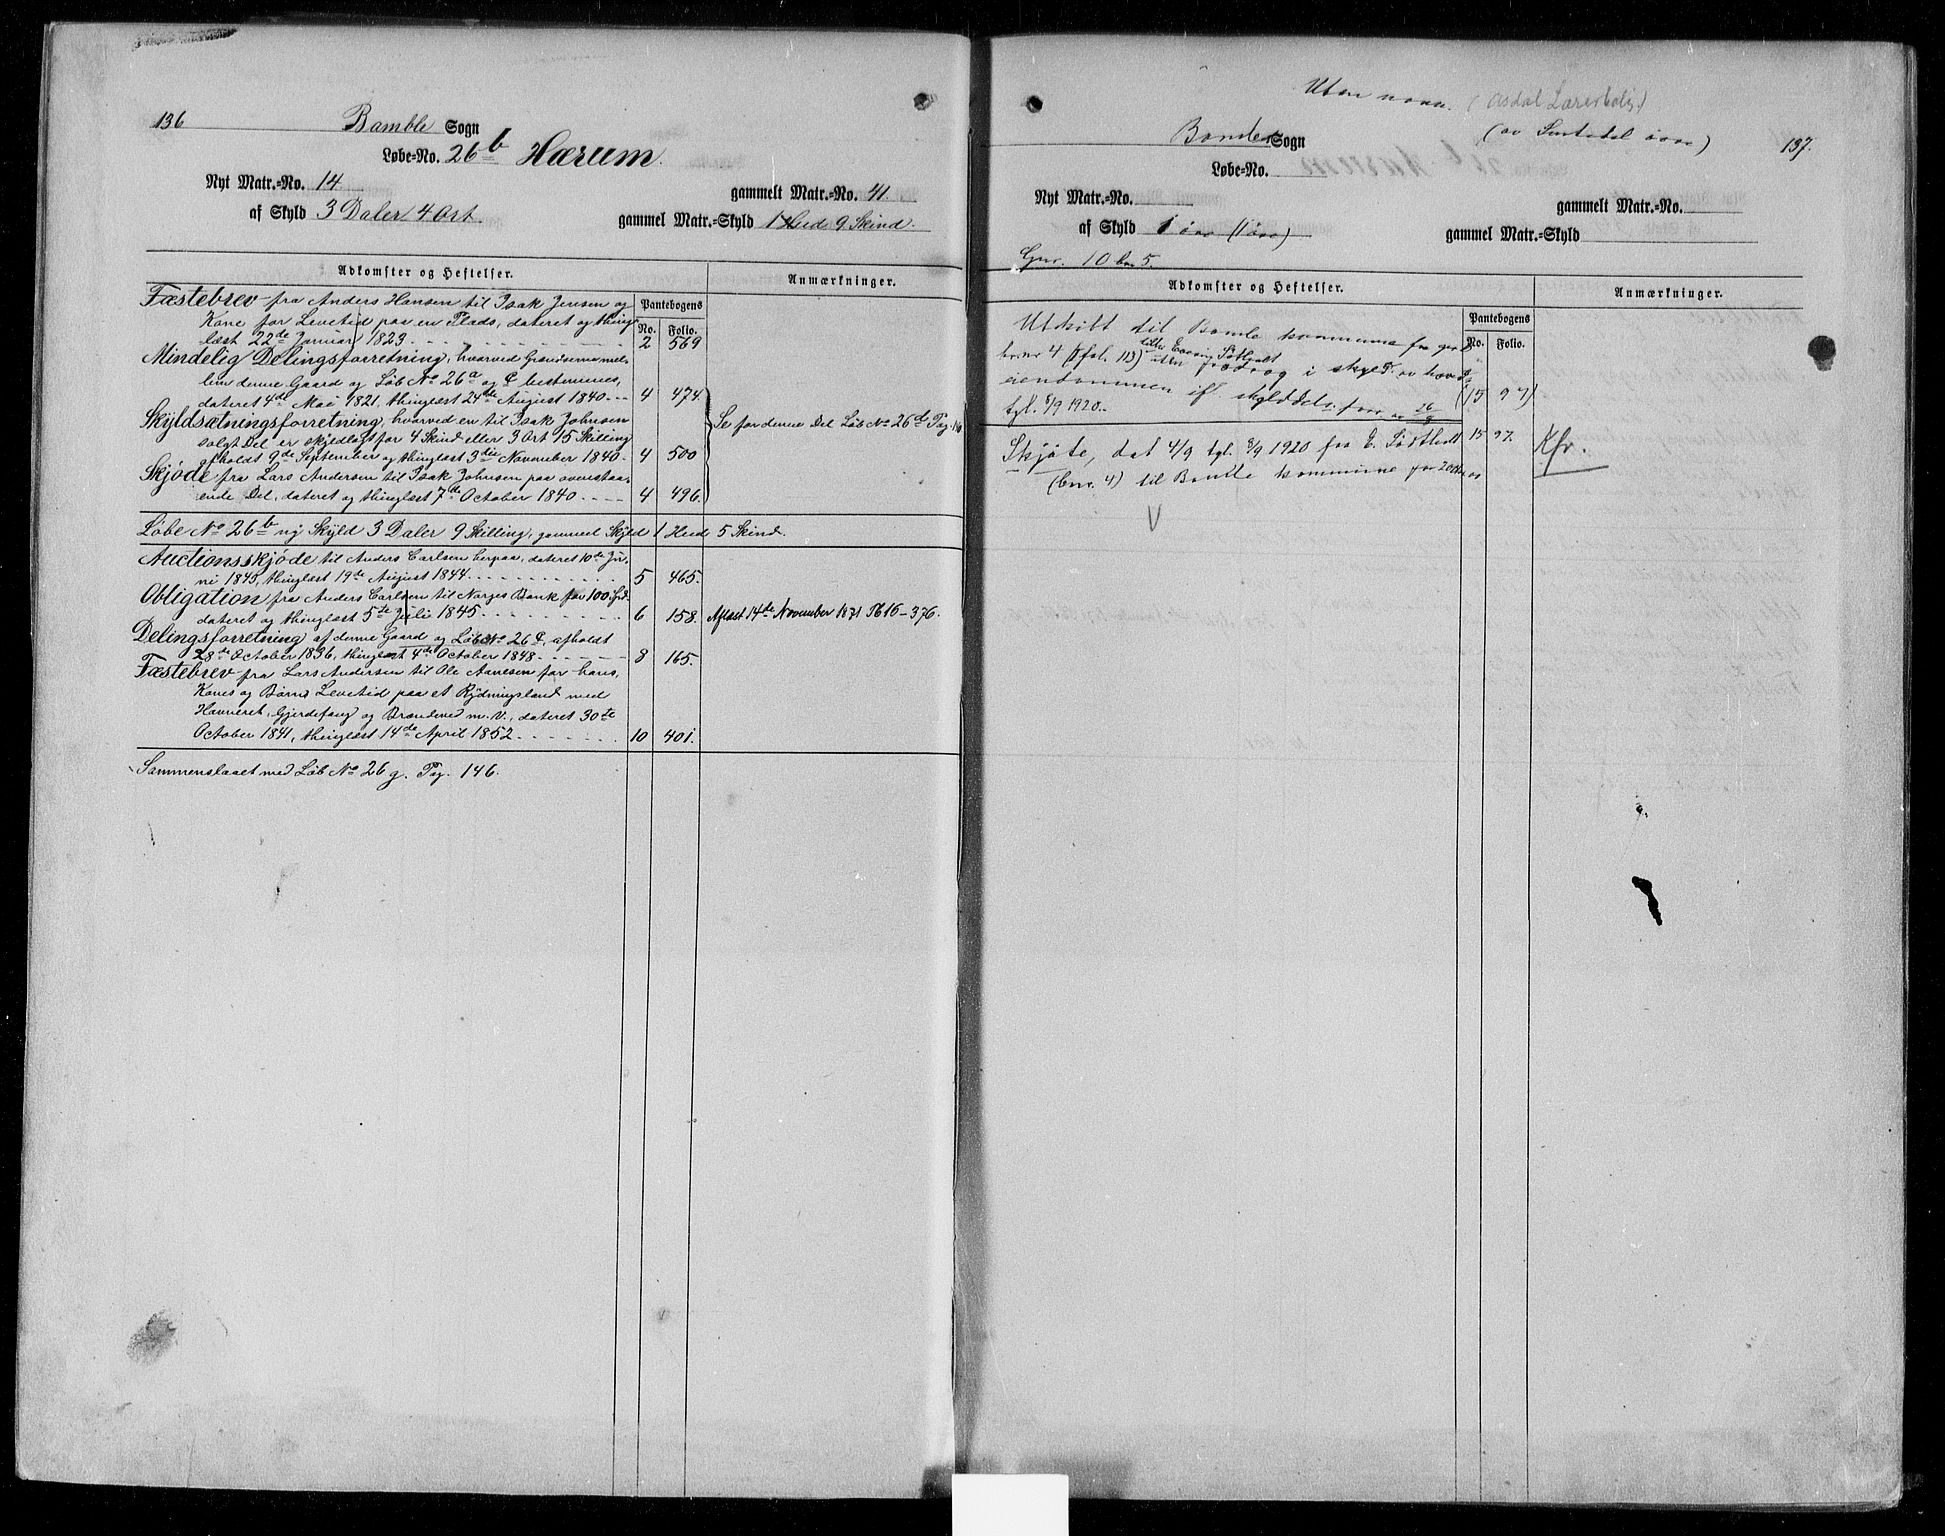 136
Bamble Sogn
Løbe-No. 26b Hærum.
Nyt Matr.-No. 14
gammelt Matr.-No. 41.
af Skyld 3 Daler 4 Ort.
gammel Matr.-Skyld 1 Hud 9 Skind.
Adkomster og Heftelser.
Anmærkninger.
Pantebogens
No. Folio.
Fæstebrev fra Anders Hansen til Isak Jensen og
Kone for Levetid paa en Plads, dateret og thing-
læst 22de Januar 1823 2 569
Mindelig Delingsforretning, hvorved Grændserne mel-
lem denne Gaard og Løb No 26a og c bestemmes,
dateret 4de Mai 1821, thinglæst 24de August 1840 4 474.
Skyldsætningsforretning, hvorved en til Isak Johnsen
solgt Del er skyldlagt for 4 Skind eller 3 Ort 15 Skilling
afholdt 9de September og thinglæst 3die November 1840. 4 500
Skjøde fra Lars Andersen til Isak Johnsen paa ovenstaa-
ende Del, dateret og thinglæst 7de October 1840 4 496.
Se for denne Del Løb No 26d Pag.
Løbe No 26b ny Skyld 3 Daler 9 Skilling, gammel Skyld 1 Hud 5 Skind.
Auctionsskjøde til Anders Carlsen herpaa, dateret 10de Ju-
ni 1843, thinglæst 19de August 1844 5 465.
Obligation fra Anders Carlsen til Norges Bank for 100 Spd.
dateret og thinglæst 5te Juli 1845 6 158. Aflæst 14de November 1871 P616-376.
Delingsforretning af denne Gaard og Løb No 26c, afholdt
28de October 1836, thinglæst 4de October 1848 8 165.
Fæstebrev fra Lars Andersen til Ole Aanesen for hans,
Kones og Børns Levetid paa et Rydningsland med
Havneret, Gjerdefang og Brændeved m.V., dateret 30te
October 1841, thinglæst 14de April 1852 10 401.
Sammenslaaet med Løb No 26g. Pag. 146.
Uten navn. (Asdal Lærerbolig)
137.
Bamble Sogn
Løbe-No.
Nyt Matr.-No.
gammelt Matr.-No.
af Skyld 1 øre (1 øre)
gammel Matr.-Skyld
Gnr. 10 bnr 5.
Adkomster og Heftelser.
Anmærkninger.
Pantebogens
No. Folio.
Utskilt til Bamle kommune fra
bnr 4 (fol. 113) uten fradrag i skyld av hoved-
eiendommen if. skylddelsforr. av 26/8 (15 97)
tgl. 8/9 1920.
Skjøte, dat 4/9 tgl. 8/9 1920 fra E. 15 97. Kfr.
(bnr. 4) til Bamle kommune for 200 kr